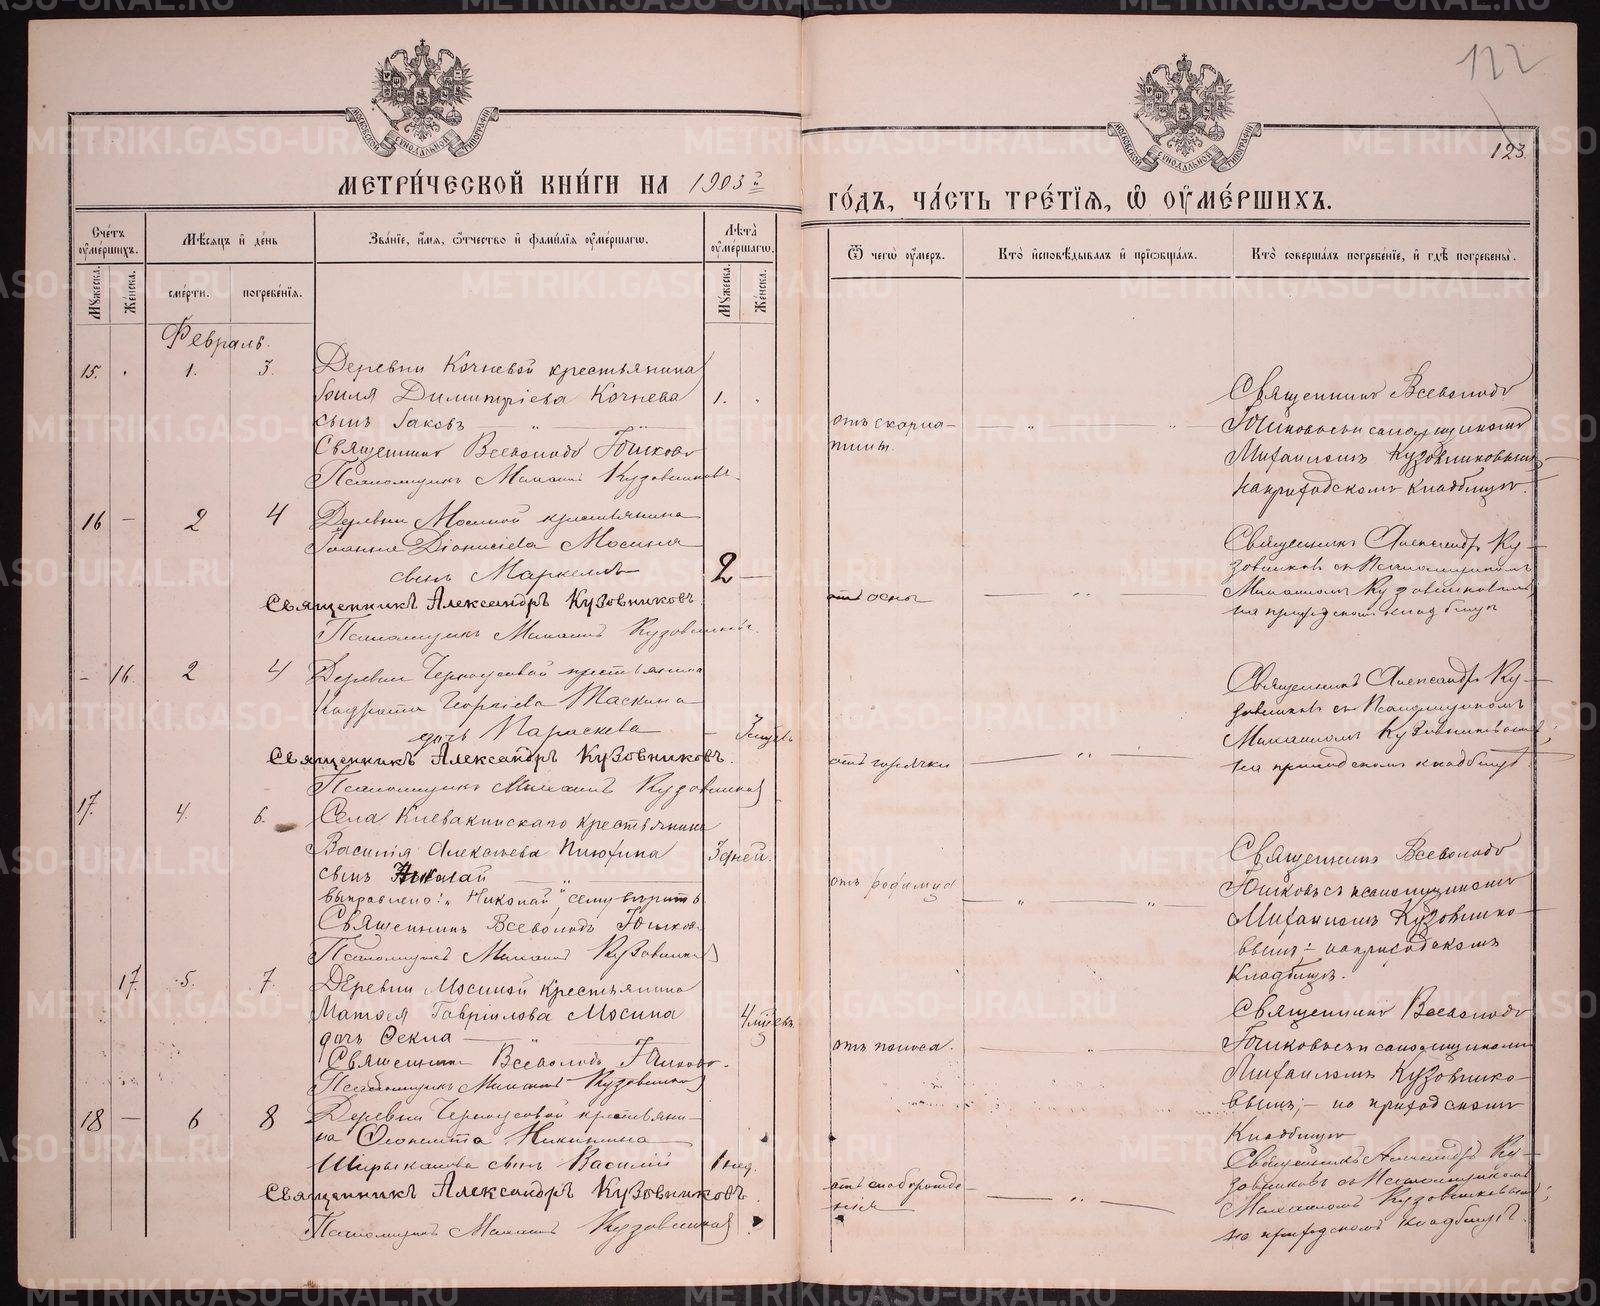 122
123.
МЕТРИ́ЧЕСКОЙ КНИ́ГИ НА 1903й
ГО́ДЪ, ЧА́СТЬ ТРЕ́ТІѦ, Ѡ҆ ОУ҆МЕ́РШИХЪ.
Сче́тъ оу҆ме́ршихъ.
Мꙋ́жеска.
Же́нска.
Мѣ́сѧцъ и҆ де́нь
сме́рти.
погребе́нїѧ.
Зва́нїе, и҆́мѧ, ѻ҆́тчество и҆ фами́лїѧ оу҆ме́ршагѡ.
Лѣ́та оу҆ме́ршагѡ.
Мꙋ́жеска.
Же́нска.
Ѿ чегѡ̀ оу҆́меръ.
Кто̀ и҆сповѣ́дывалъ и҆ прїѡбща́лъ.
Кто̀ соверша́лъ погребе́нїе, и҆ гдѣ̀ погребены̀.
Февраль.
15. 1. 3. Деревни Кочневой крестьянина
Димитріева Кочнева 1.
сынъ Іаковъ
Священникъ Всеволодъ
Псаломщикъ Михаилъ Кузовниковъ
отъ скарла-
тины.
Священникъ Всеволодъ
съ псаломщикомъ
Михаиломъ Кузовниковымъ
на приходскомъ кладбищѣ.
16 — 2 4 Деревни Мосиной крестьянина
Іоанна Діонисіева Мосина
сынъ Маркеллъ 2
Священникъ Александръ Кузовниковъ.
Псаломщикъ Михаилъ Кузовниковъ.
отъ оспы
Священникъ Александръ Ку-
зовниковъ съ Псаломщикомъ
Михаиломъ Кузовниковымъ
на приходскомъ кладбищѣ
— 16 2 4 Деревни Черноусовой крестьянина
Георгіева Маскина
дочь Параскева
Священникъ Александръ Кузовниковъ.
Псаломщикъ Михаилъ Кузовниковъ
отъ горячки
Священникъ Александръ Ку-
зовниковъ съ Псаломщикомъ
Михаиломъ Кузовниковымъ;
на приходскомъ кладбищѣ
17. 4. 6. Села Клевакинскаго крестьянина
Василія Алексѣева 3 дней.
сынъ Николай
выправлено: „Николай“, сему вѣрить
Священникъ Всеволодъ
Псаломщикъ Михаилъ Кузовниковъ
отъ родимца
Священникъ Всеволодъ
съ псаломщикомъ
Михаиломъ Кузовнико-
вымъ; — на приходскомъ
кладбищѣ.
17. 5. 7. Деревни Мосиной крестьянина
Матѳея Гавріилова Мосина
дочь Ѳекла
Священникъ Всеволодъ
Псаломщикъ Михаилъ Кузовниковъ
отъ поноса.
Священникъ Всеволодъ
съ псаломщикомъ
Михаиломъ Кузовнико-
вымъ; — на приходскомъ
кладбищѣ
18 — 6 8 Деревни Черноусовой крестьяни-
на Никитина
сынъ Василій 1 нед.
Священникъ Александръ Кузовниковъ.
Псаломщикъ Михаилъ Кузовниковъ
отъ слаборожде-
нія
Священникъ Александръ Ку-
зовниковъ съ Псаломщикомъ
Михаиломъ Кузовниковымъ;
на приходскомъ кладбищѣ.
METRIKI.GASO-URAL.RU